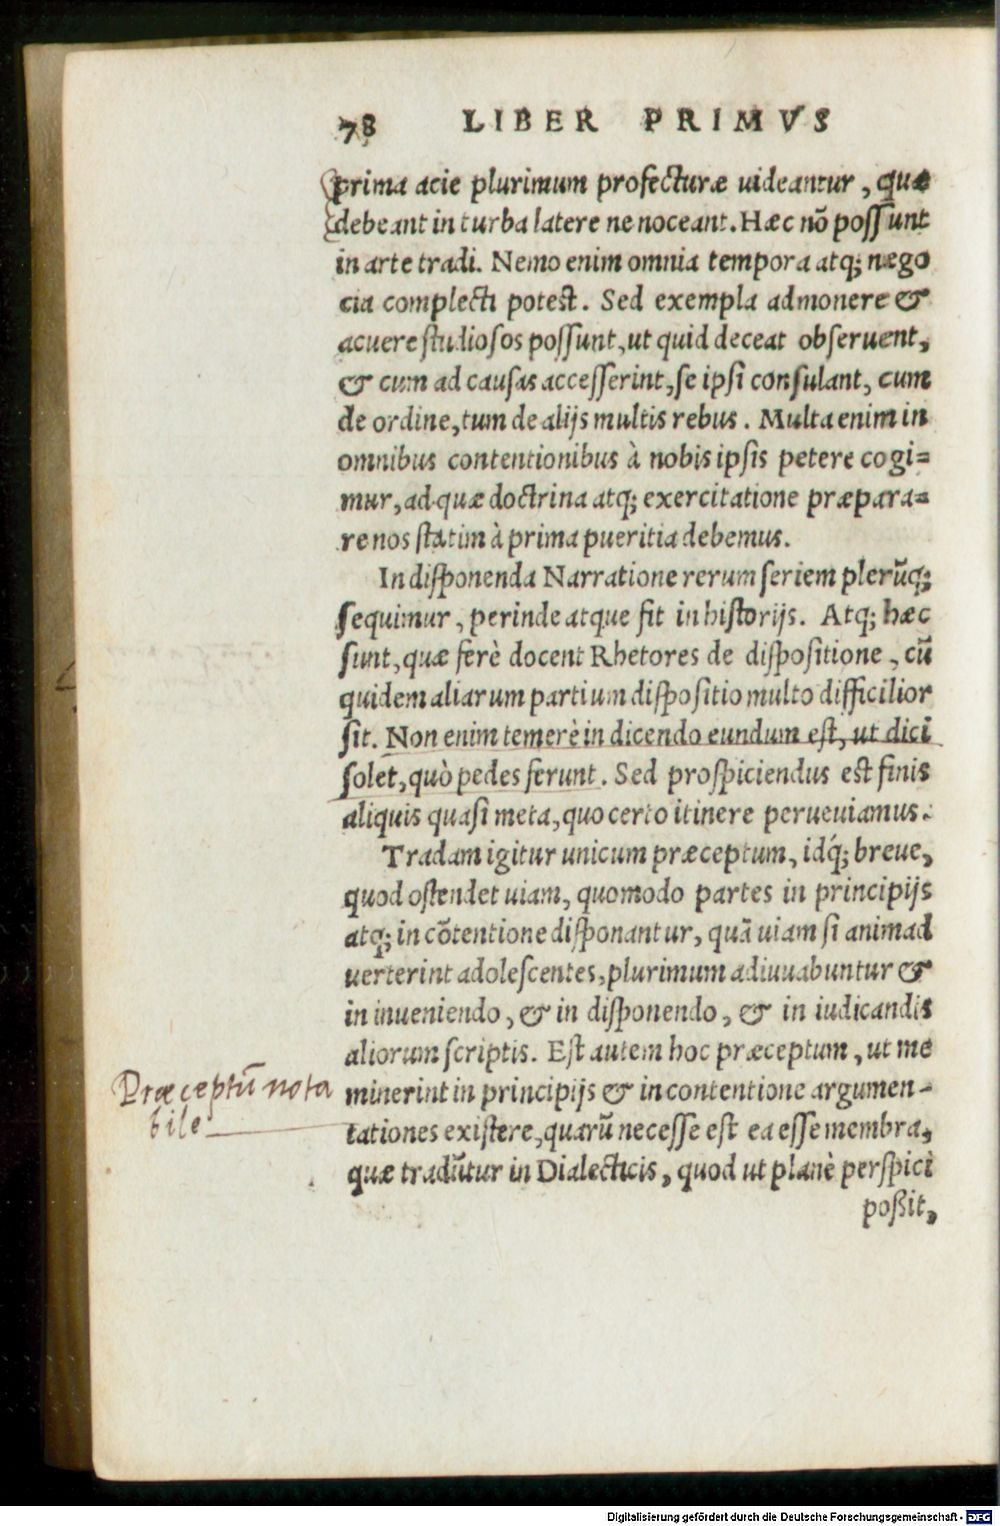 78 LIBER PRIMVS
prima acie plurimum profecturæ uideantur, quæ
debeant in turba latere ne noceant. Hæc nõ possunt
in arte tradi. Nemo enim omnia tempora atq; nego
cia complecti potest. Sed exempla admonere &
acuere studiosos possunt, ut quid deceat obseruent,
& cum ad causas accesserint, se ipsi consulant, cum
de ordine, tum de alijs multis rebus. Multa enim in
omnibus contentionibus à nobis ipsis petere cogi=
mur, ad quæ doctrina atq; exercitatione præpara=
re nos statim à prima pueritia debemus.
In disponenda Narratione rerum seriem plerũq;
sequimur, perinde atque fit in historijs. Atq; hæc
sunt, quæ ferè docent Rhetores de dispositione, cũ
quidem aliarum partium dispositio multo difficilior
sit. Non enim temerè in dicendo eundum est, ut dici
solet, quò pedes ferunt. Sed prospiciendus est finis
aliquis quasi meta, quo certo itinere perueuiamus.
Tradam igitur unicum præceptum, idq́; breue,
quod ostendet uiam, quomodo partes in principijs
atq; in cõtentione disponantur, quã uiam si animad
uerterint adolescentes, plurimum adiuuabuntur &
in inueniendo, & in disponendo, & in iudicandis
aliorum scriptis. Est autem hoc præceptum, ut me
Præceptũ nota
bile
minerint in principijs & in contentione argumen-
tationes existere, quarũ necesse est ea esse membra,
quæ tradũtur in Dialecticis, quod ut planè perspici
poßit,
Digitalisierung gefördert durch die Deutsche Forschungsgemeinschaft - DFG